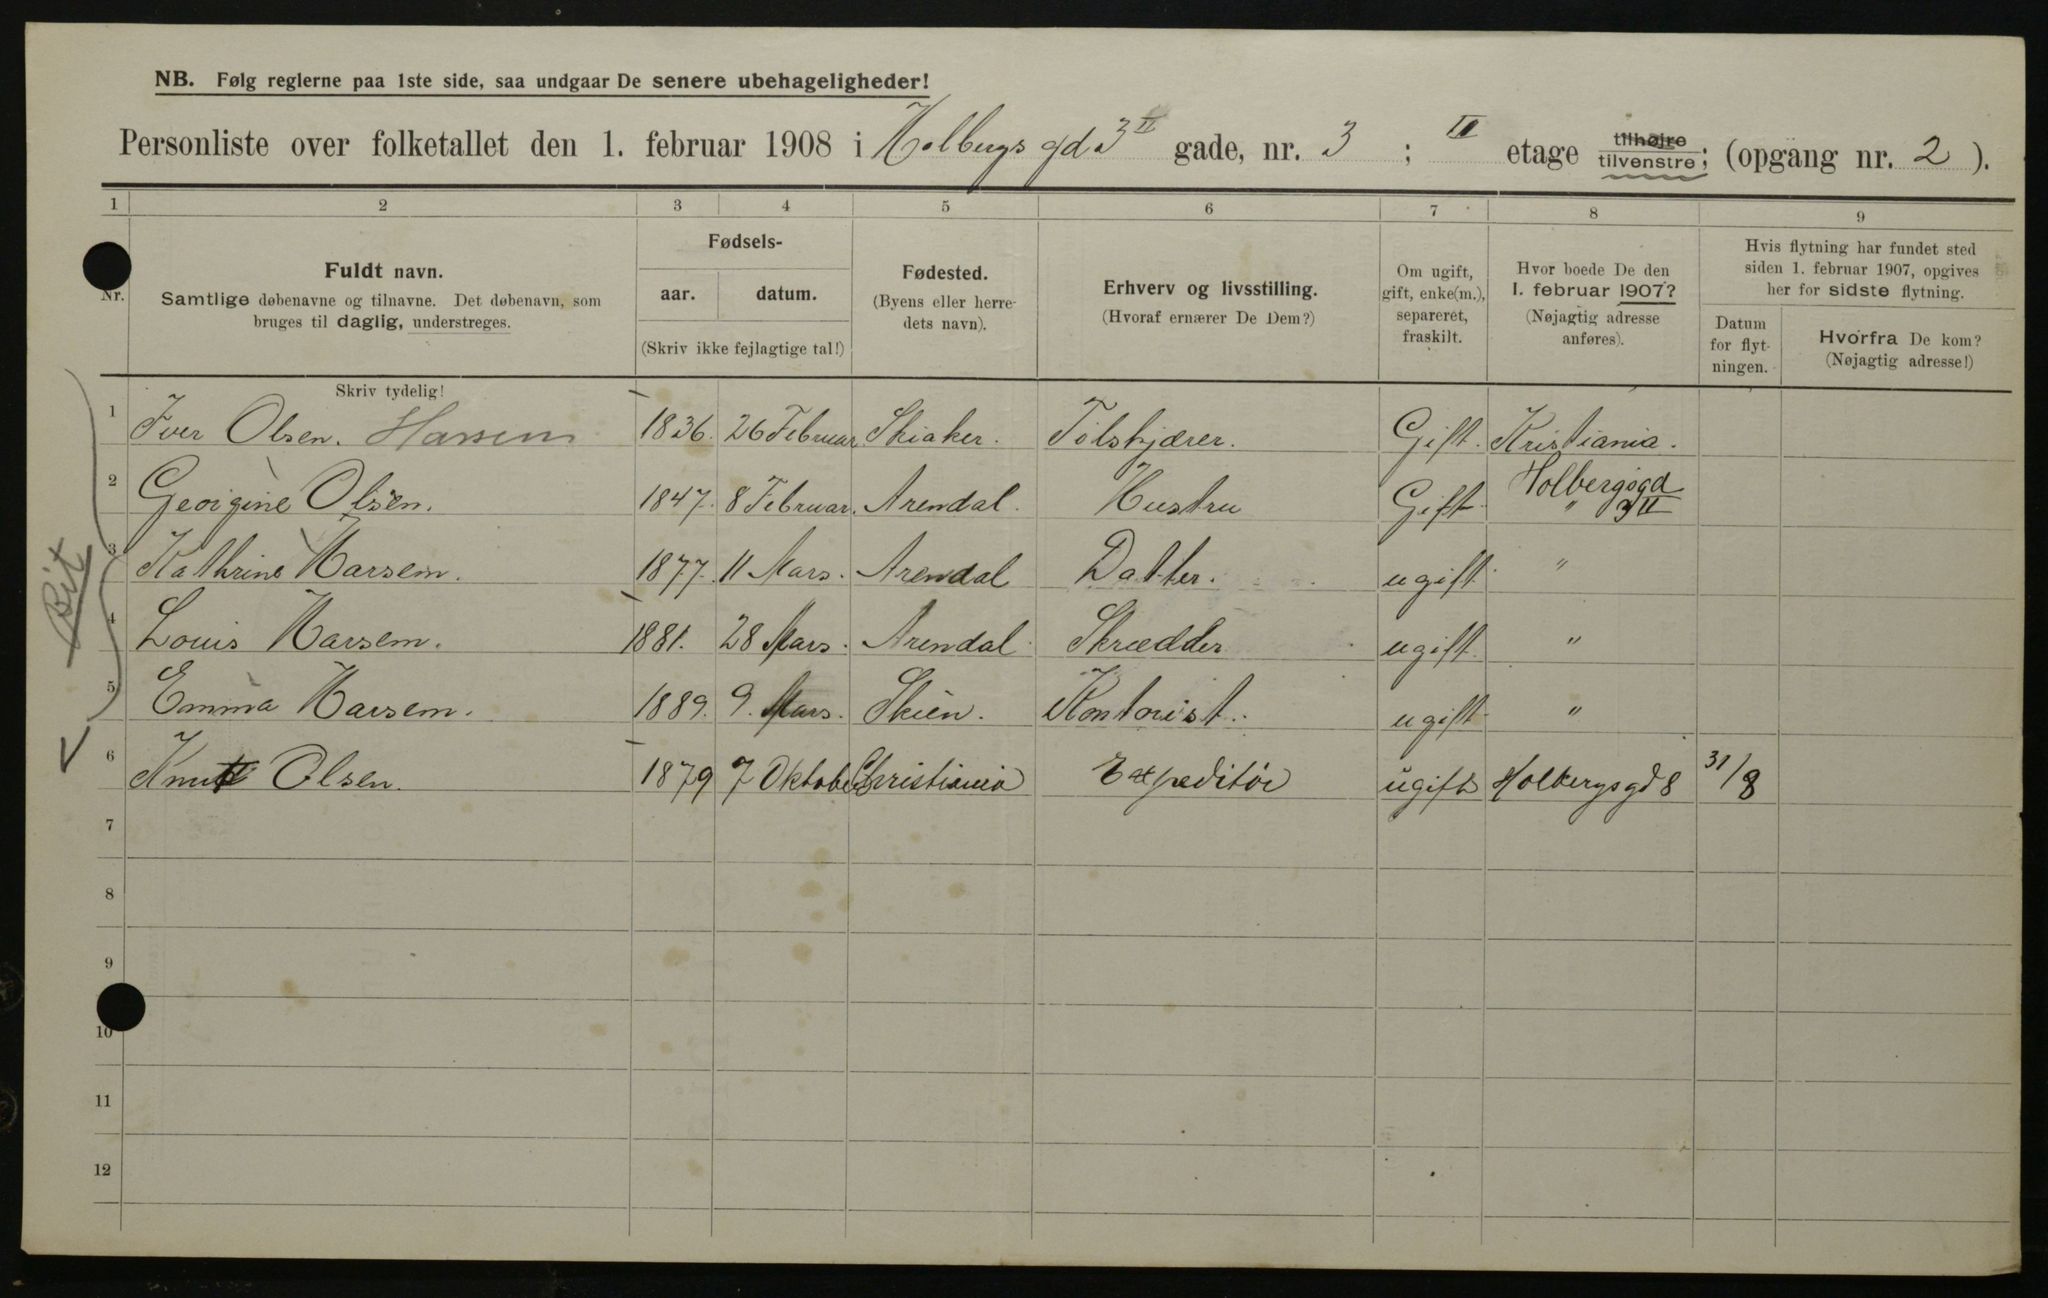 NB. Følg reglerne paa 1ste side, saa undgaar De senere ubehageligheder!
Personliste over folketallet den 1. februar 1908 i Holbergs gd 3 II gade, nr. 3 ; II etage tilhøjre tilvenstre; (opgang nr. 2 ).
1 2 3 4 5 6 7 8 9
Nr.
Fuldt navn.
Samtlige døbenavne og tilnavne. Det døbenavn, som
bruges til daglig, understreges.
Fødsels-
aar. datum.
(Skriv ikke fejlagtige tal!)
Fødested.
(Byens eller herre-
dets navn).
Erhverv og livsstilling.
(Hvoraf ernærer De Dem?)
Om ugift,
gift, enke(m.),
separeret,
fraskilt.
Hvor boede De den
1. februar 1907?
(Nøjagtig adresse
anføres).
Hvis flytning har fundet sted
siden 1. februar 1907, opgives
her for sidste flytning.
Datum
for flyt-
ningen.
Hvorfra De kom?
(Nøjagtig adresse!)
Skriv tydelig!
1 Iver Olsen. Harsem 1836. 26 Februar Skiaker. Tolskjærer. Gift. Kristiania.
2 Georgine Olsen. 1847. 8 Februar. Arendal. Hustru Gift. Holbergsgd " 3 II
3 Kathrine Harsem. 1877. 11 Mars. Arendal Datter. ugift. "
4 Louis Harsem. 1881. 28 Mars. Arendal Skrædder ugift. "
5 Emma Harsem. 1889. 9. Mars. Skien. Kontorist. ugift. "
6 Knut Olsen. 1879 7 Oktober Christiania Expeditör ugift Holbergsgd 8 31/8
7
8
9
10
11
12